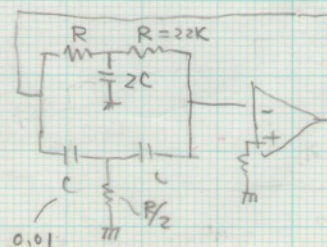 R R = 22K
2C
- +
C C
R/2
0.01